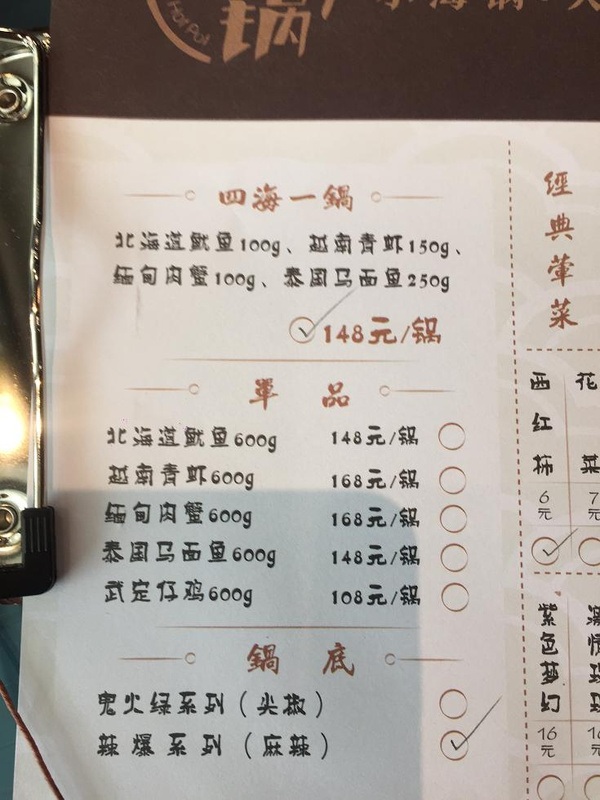 Hot Pot
锅
四海一鍋
北海道鱿鱼100g、越南青虾150g、
缅甸肉蟹100g、泰国马面鱼250g
148元/锅
單品
北海道鱿鱼600g 148元/锅
越南青虾600g 168元/锅
缅甸肉蟹600g 168元/锅
泰国马面鱼600g 148元/锅
武定仔鸡600g 108元/锅
鍋底
鬼火绿系列（尖椒）
辣爆系列（麻辣）
經典葷菜
西红柿
6元
花菜
7元
紫色梦幻
16元